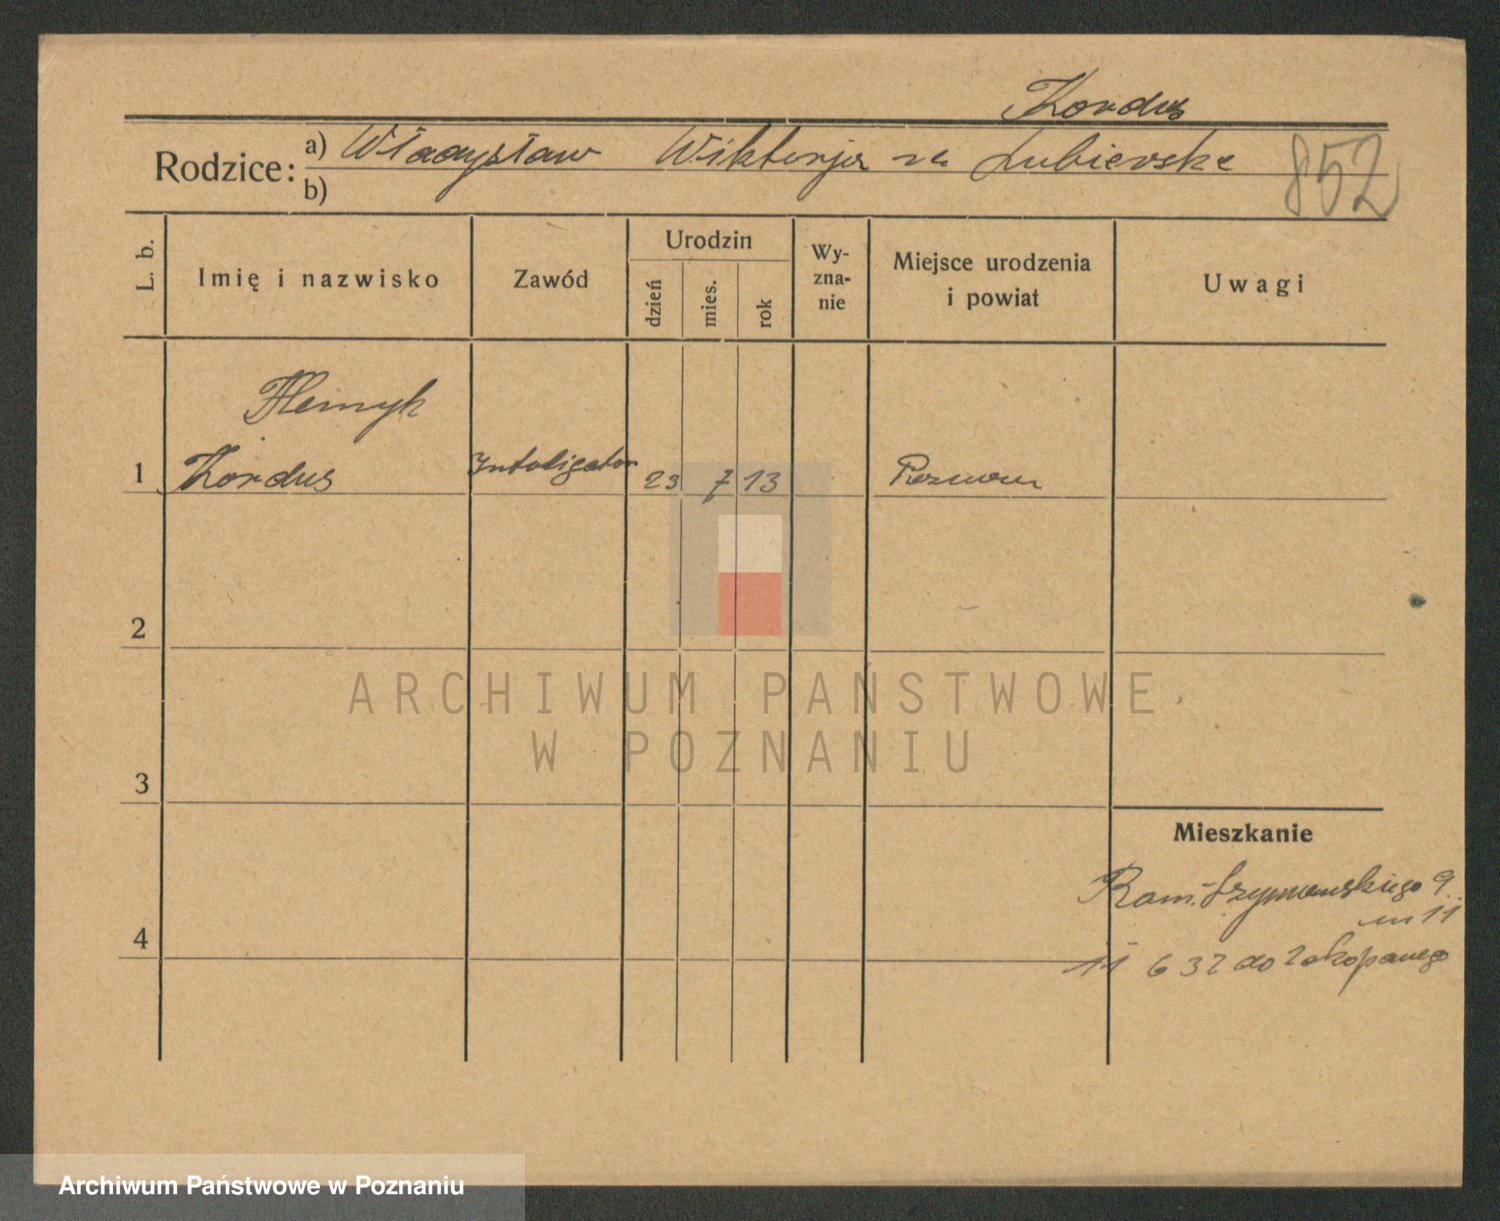 Kordus
Rodzice: a) Władysław Wiktorja z d Lubierska
b)
852
L. b. Imię i nazwisko Zawód Urodzin dzień mies. rok Wy-zna-nie Miejsce urodzenia i powiat Uwagi
Henryk
1 Kordus Introligator 23 7 13 Poznań
2
ARCHIWUM PAŃSTWOWE
W POZNANIU
3
Mieszkanie
Ram. Szymańskiego 9
m 11
4
11 6 32 do Zakopanego
Archiwum Państwowe w Poznaniu